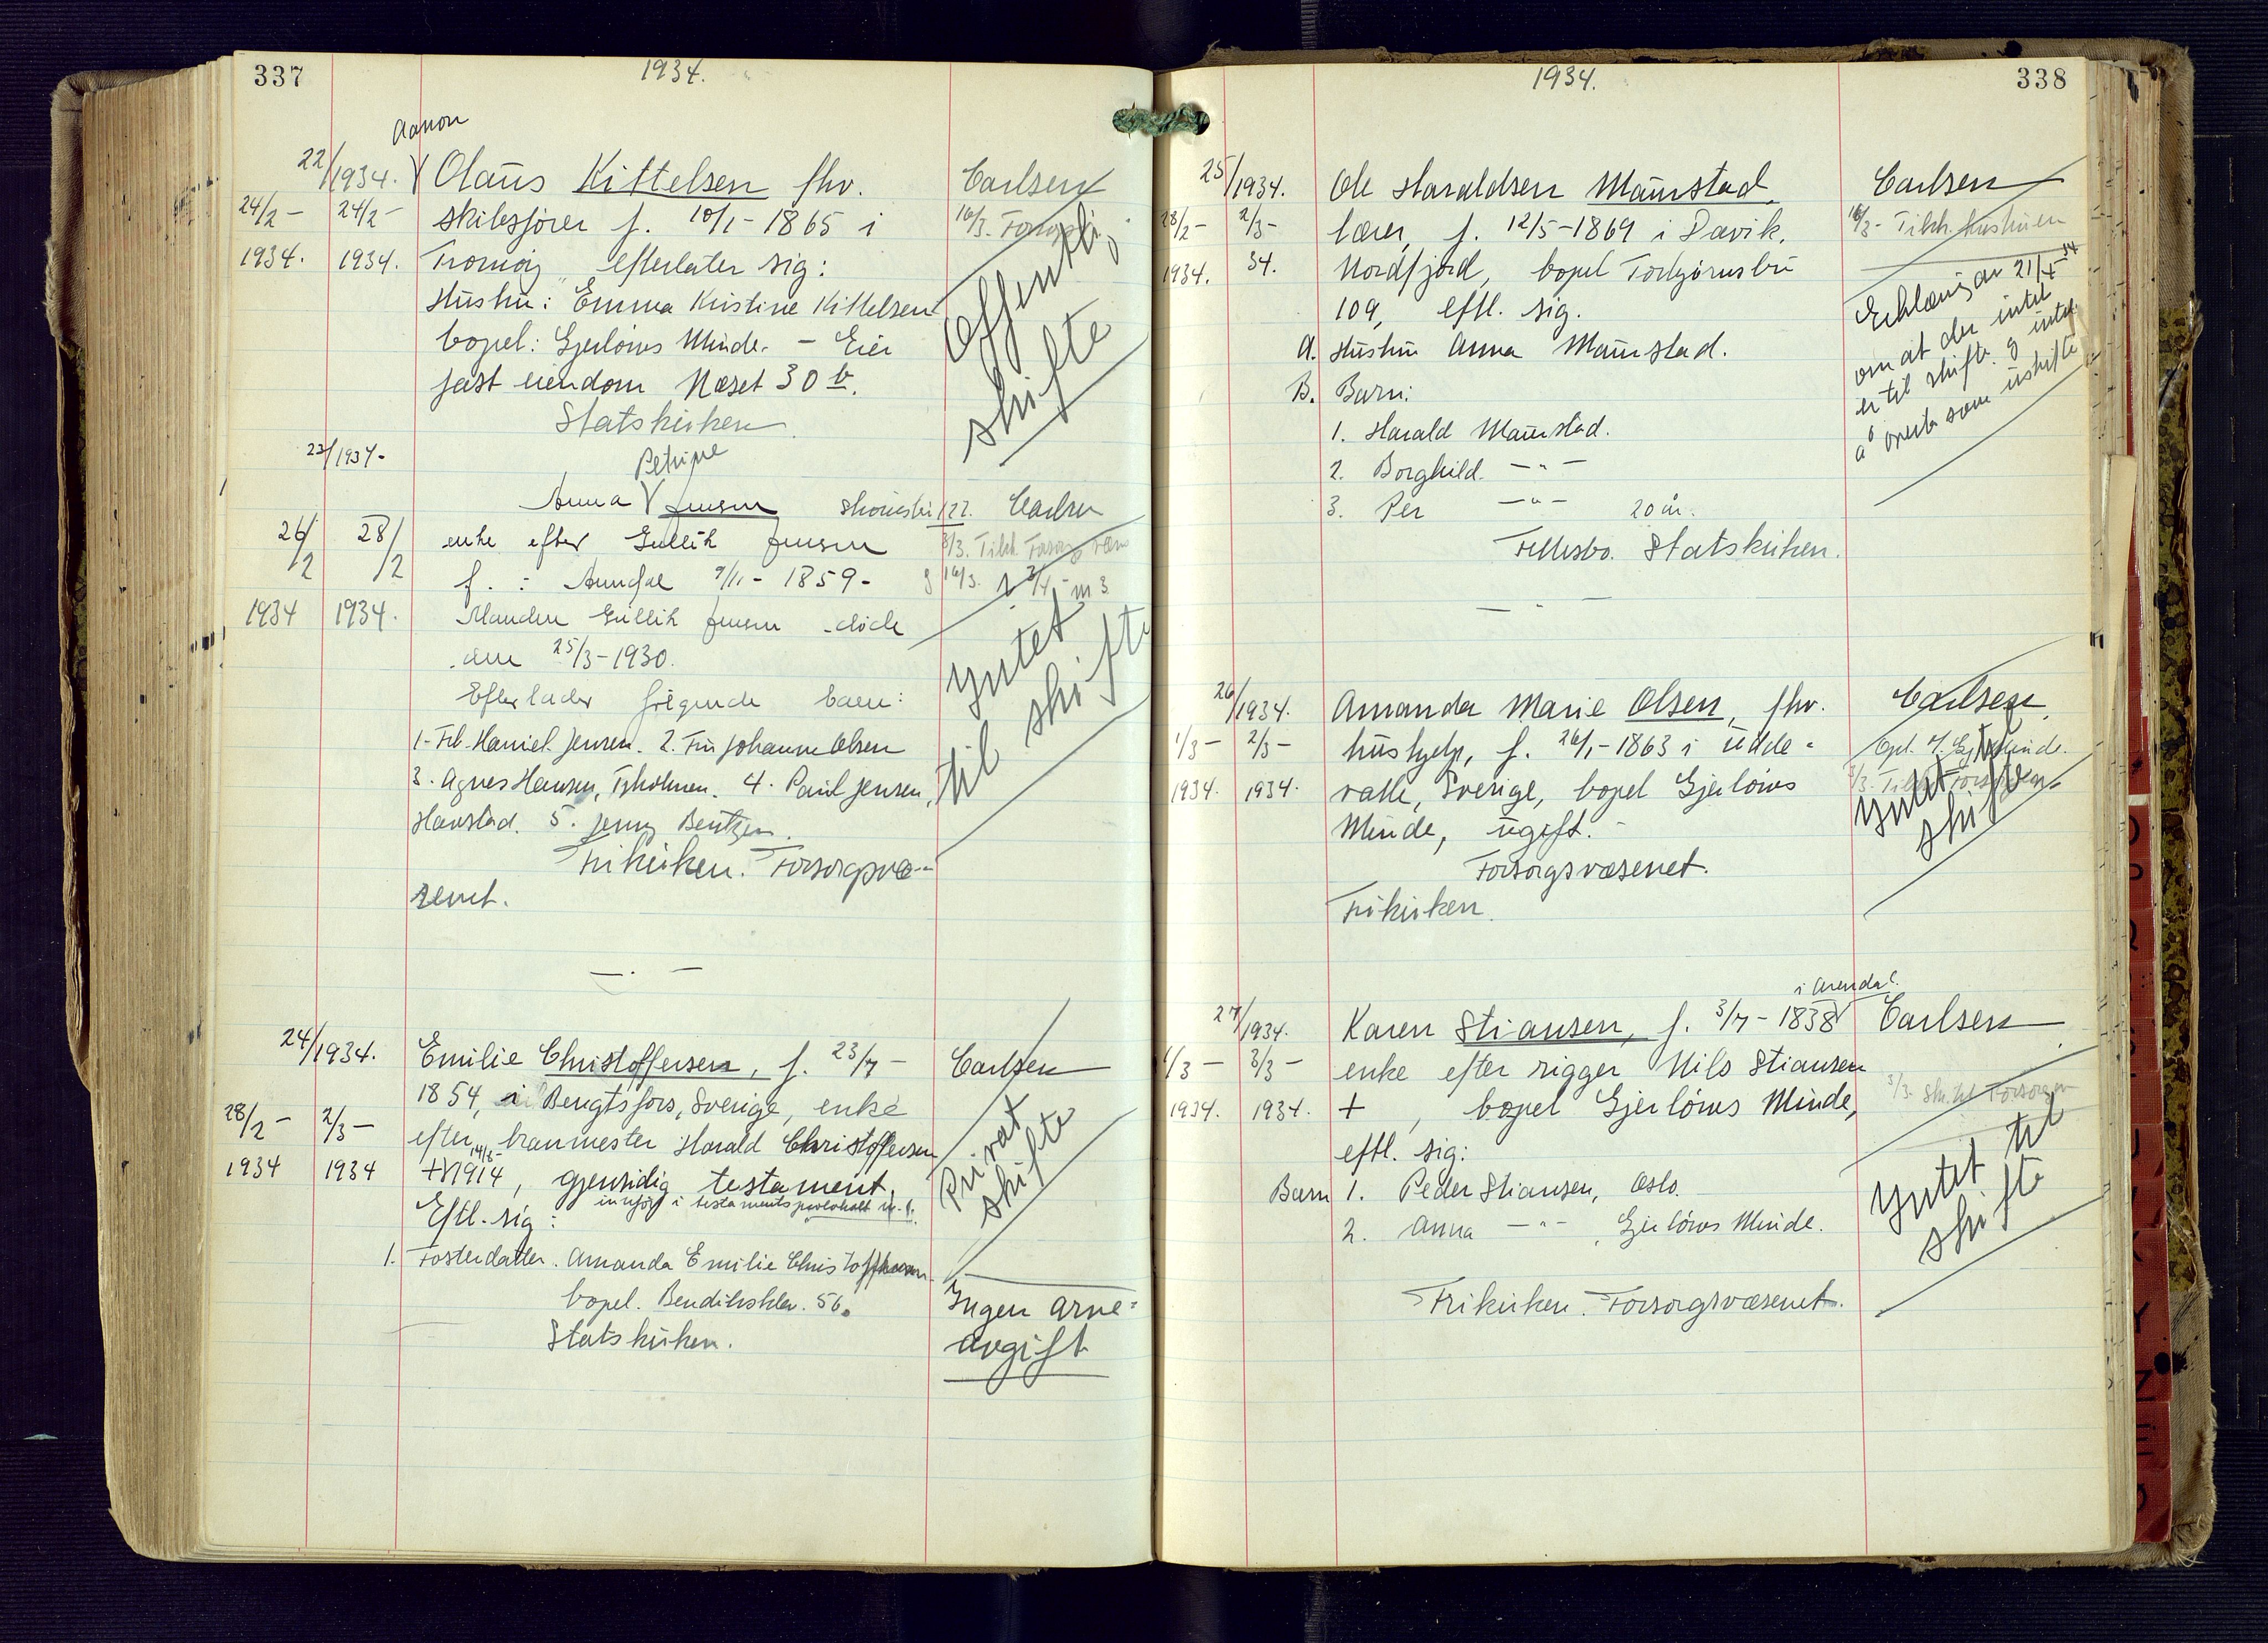 337
1934.
Aanon
22/1934. Olaus Kittelsen fhv. Carlsen
24/2- 24/2- skibsfører f. 10/1-1865 i 16/3.
1934. 1934. Tromøy efterlater sig: Offentlig
Hustru: Emma Kristine Kittelsen skifte
bopel: Gjerløws Minde. - Eier
fast eiendom Næset 30 b.
Statskirken.
23/1934- Petrine
Anna Jensen Skoivsbr 122. Carlsen
26/2 28/2 enke efter Gullik Jensen 3/3. Tilsk. Forsorgsvæs
f. : Arendal 9/11-1859- g 16/3.
1934 1934. Manden Gullik Jensen døde Intet
den 25/3-1930. til skifte
Efterlader følgende barn:
1. Frk. Harriet Jensen. 2. Fru Johanne Olsen
3. Agnes Hansen, Tyholmen. 4. Paul Jensen,
Havstad. 5. Jenny Bentzen.
Frikirken. Forsorgsvæ-
senet.
24/1934. Emilie Christoffersen, f. 23/7- Carlsen
1854, i Bengtsfors, Sverige, enke
28/2- 2/3- efter branmester Harald Christoffersen Privat
1934 1934 + 14/8-1914, gjensidig testament, skifte
innført i testamentsprotokoll
Eftl. sig:
1. Fosterdatter. Amanda Emilie Christoffersen
bopel. Bendiksklev. 56. Ingen arve-
Statskirken. avgift
338
1934.
25/1934. Ole Haraldsen Maurstad, Carlsen
28/2- 2/3- lærer, f. 12/5-1869 i Davik, 16/3- Tilskr. hustruen
1934. 34. Nordfjord, bopel Torbjørnsbu Erklæring av 21/4 34
109, eftl. sig. om at der intet
A. Hustru Anna Maurstad. er til skifte og intet
B. Barn: å overta som uskifte
1. Harald Maurstad.
2. Borghild. - " -
3. Per - " - 20 år.
Fellesbo. Statskirken.
26/1934. Amanda Marie Olsen, fhv. Carlsen
1/3- 2/3- hushjelp, f. 26/1-1863 i Udde-
1934. 1934. valle, Sverige, bopel Gjerløws Intet til
Minde, ugift. skifte
Forsorgsvæsenet.
Frikirken.
i Arendal.
27/1934. Karen Stiansen, f. 3/7-1838 Carlsen
1/3- 3/3- enke efter rigger Nils Stiansen 3/3. Skr. til Forsorgen
1934. 1934. + , bopel Gjerløws Minde,
eftl. sig: Intet til
Barn 1. Peder Stiansen, Oslo. skifte
2. Anna - " - , Gjerløws Minde.
Frikirken. Forsorgsvæsenet.